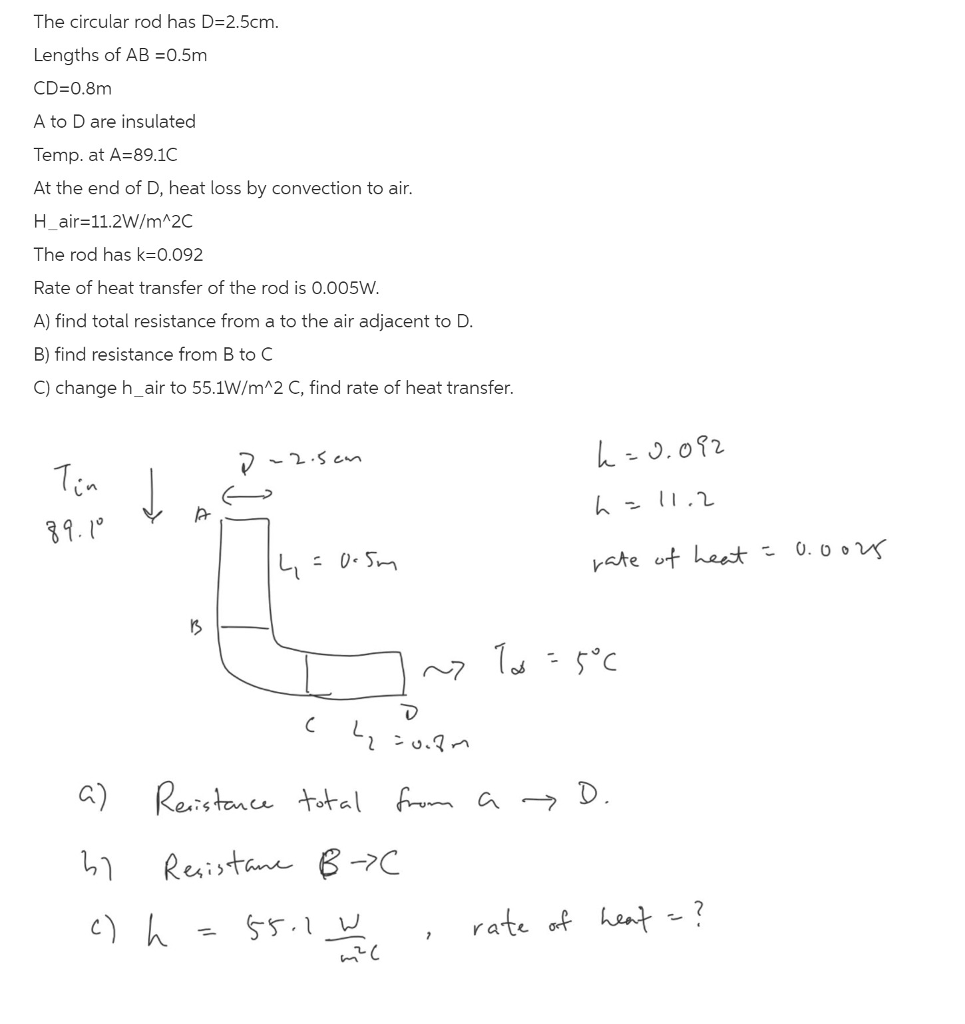 The circular rod has D=2.5cm.
Lengths of AB =0.5m
CD=0.8m
A to D are insulated
Temp. at A=89.1C
At the end of D, heat loss by convection to air.
H_air=11.2W/m^2C
The rod has k=0.092
Rate of heat transfer of the rod is 0.005W.
A) find total resistance from a to the air adjacent to D.
B) find resistance from B to C
C) change h_air to 55.1W/m^2 C, find rate of heat transfer.
D - 2.5 cm
k = 0.092
Tin
h = 11.2
89.1°
A
L1 = 0.5m
rate of heat =
B
T∞ = 5°C
C
D
L2 = 0.8m
a) Resistance total from a → D.
b) Resistane B → C
c) h = 55.1 W/m²C , rate of heat = ?